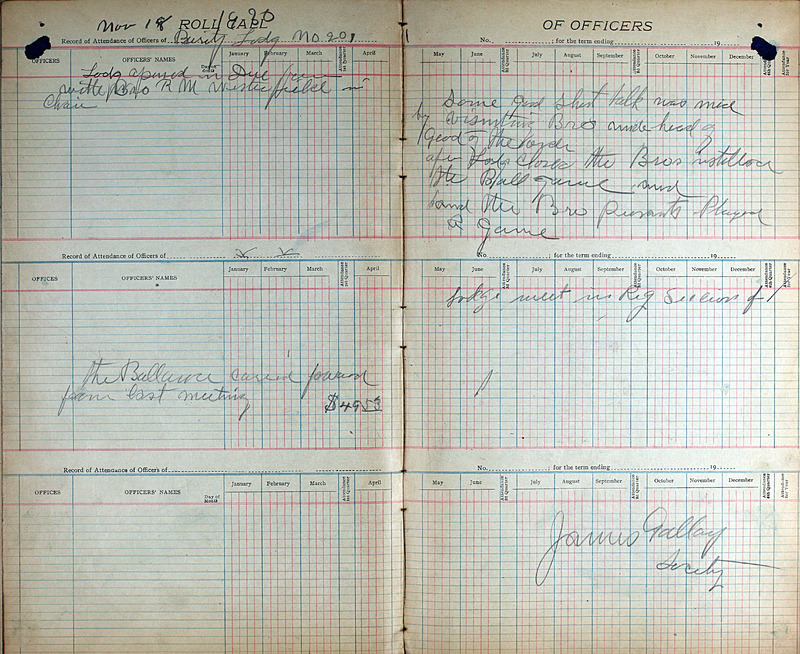 Nov 18
ROLL CALL
Record of Attendance of Officers of Lodg No 201
OFFICERS
OFFICERS' NAMES
January
February
March
Attendance 1st Quarter
April
Lodg in Due
R M Westerfield in
Chair
Record of Attendance of Officers of
OFFICES
OFFICERS' NAMES
January
February
March
Attendance 1st Quarter
April
the Ballance caried forward
from last meeting
$4953
Record of Attendance of Officers of
OFFICES
OFFICERS' NAMES
Day of Month
January
February
March
Attendance 1st Quarter
April
OF OFFICERS
No. ; for the term ending 19
May
June
Attendance 2d Quarter
July
August
September
Attendance 3d Quarter
October
November
December
Attendance 4th Quarter
Attendance for Year
Some good short talk was made
by Bros under head of
Good of the
after Lodg closed the Bros
the Ball game and
and the Bro Played
a game
No. ; for the term ending 19
May
June
Attendance 2d Quarter
July
August
September
Attendance 3d Quarter
October
November
December
Attendance 4th Quarter
Attendance for Year
Lodge meet in Reg
No. ; for the term ending 19
May
June
Attendance 2d Quarter
July
August
September
Attendance 3d Quarter
October
November
December
Attendance 4th Quarter
Attendance for Year
James Gallay